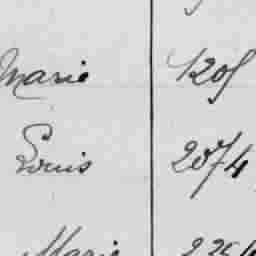 Marie 1205
Louis 2074
Marie